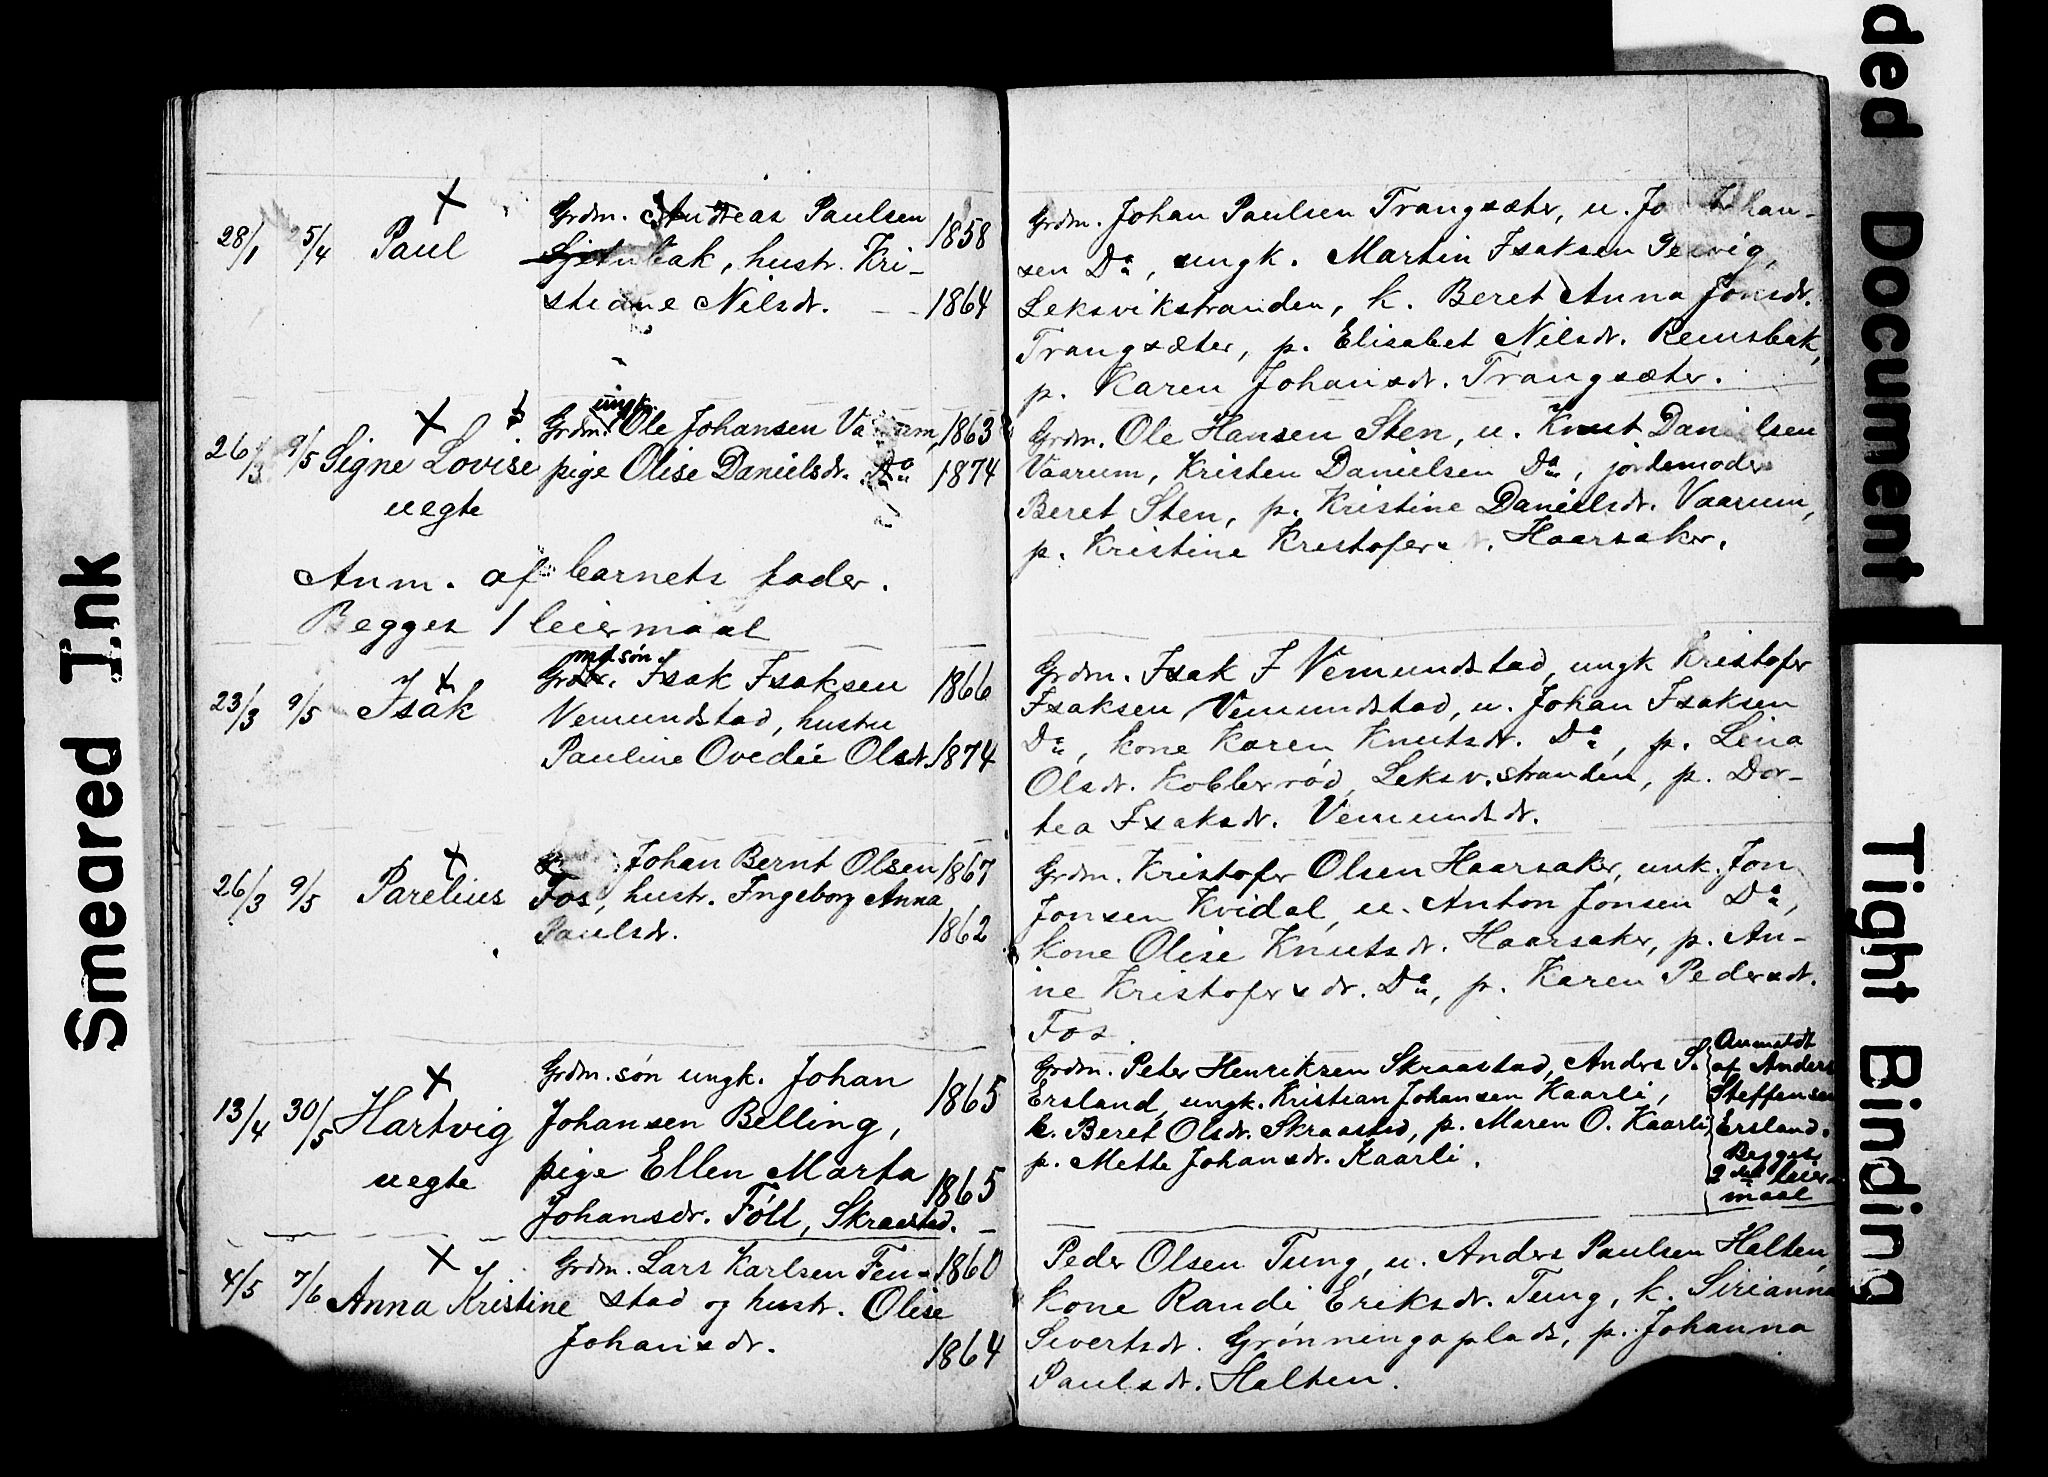 28/1 25/4 Paul
Grdm. Andreas Paulsen 1858
hustr. Kri-
stiane Nilsdr. - - 1864
26/3 9/5 Signe Lovise
uegte
ungk.
Grdm. Ole Johansen Vaarum, 1863
pige Olise Danielsdr. Do 1874
Anm. af barnets fader.
Begges 1 leiermaal
23/3 9/5 Isak
søn
Isak Isaksen 1866
Vemundstad, hustru
Pauline Ovedie Olsdr. 1874
26/3 9/5 Parelius
Johan Bernt Olsen 1867
Fos, hustr. Ingeborg Anna
Paulsdr. 1862
13/4 30/5 Hartvig
uegte
Grdm. søn ungk. Johan 1865
Johansen Belling,
pige Ellen Marta 1865
Johansdr. Föll, Skraastad.
4/5 7/6 Anna Kristine
Grdm. Lars Karlsen Fen- 1860
stad og hustr. Olise
Johansdr. 1864
Grdm. Johan Paulsen Trangsæter, u. Johan-
sen Do, ungk. Martin Isaksen
Leksvikstranden, k. Beret Anna Jonsdr.
Trangsæter, p. Elisabet Nilsdr. Remsbak,
p. Karen Johansdr. Trangsæter.
Grdm. Ole Hansen Sten, u. Knut Danielsen
Vaarum, Kristen Danielsen Do, jordemoder
Beret Sten, p. Kristine Danielsdr. Vaarum,
p. Kristine Kristofersdr. Haarsaker.
Grdm. Isak I Vemundstad, ungk Kristofer
Isaksen Vemundstad, u. Johan Isaksen
Do, kone Karen Knutsdr. Do, p. Lina
Olsdr. Koblerrød, Leksv.stranden, p. Dor-
tea Isaksdr. Vemundsd.
Grdm. Kristofer Olsen Haarsaker, unk. Jon
Jonsen Kvidal, u. Anton Jonsen Do,
kone Olise Knutsdr. Haarsaker, p. An-
ine Kristofersdr. Do, p. Karen Pedersdr.
Fos
Grdm. Peter Henriksen Skraastad, Anders S.
Ersland, ungk. Kristian Johansen Kaarli,
k. Beret Olsdr. Skraastad, p. Maren O. Kaarli,
p. Mette Johansdr. Kaarli.
Anmeldt
af Anders
Steffensen
Ersland.
Begges
2det leier-
maal
Peder Olsen Tung, u. Anders Paulsen Halten,
kone Randi Eriksdr. Tung, k. Sirianna
Sivertsdr. Grønningsplads, p. Johanna
Paulsdr. Halten.
Smeared Ink
ded Document
Tight Binding